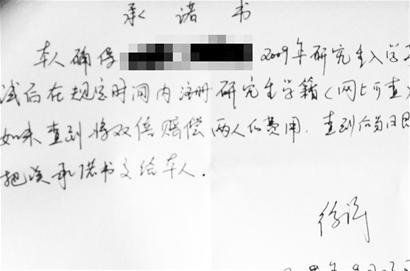 承诺书
本人确保 2009年研究生入学
试后在规定时间内注册研究生学籍（网上可查）
如未查到将双倍赔偿两人的费用．查到后当日即
把该承诺书交给本人．
徐